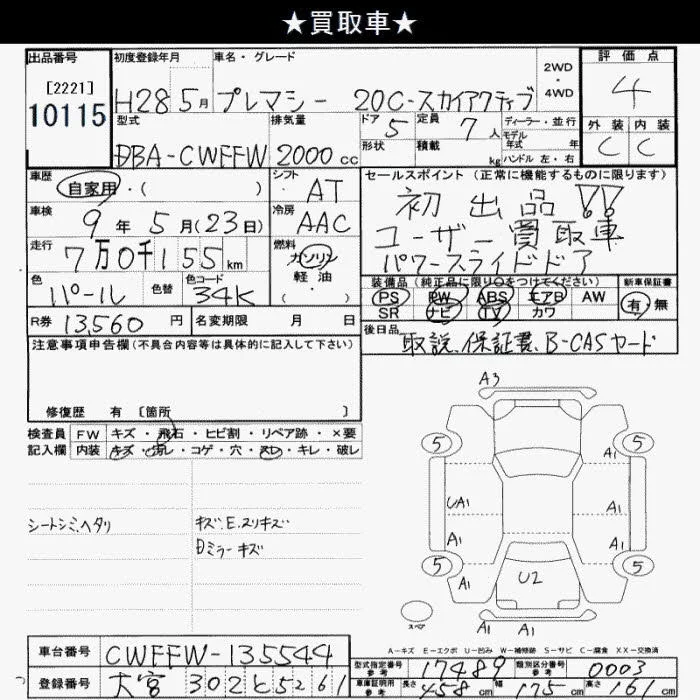 ★買取車★
出品番号 初度登録年月 車名・グレード 2WD・4WD 評価点
[2221]
10115
H28 5月 プレマシー 20C-スカイアクティブ 4
型式 排気量 ドア 5 定員 7人 ディーラー・並行 外装 内装
モデル年式 年
DBA-CWFFW 2000cc 形状 積載 kg ハンドル 左・右 C C
車歴 シフト セールスポイント (正常に機能するものに限ります)
自家用・( ) AT 初出品!!
車検 冷房 ユーザー買取車
9年5月(23日) AAC パワースライドドア
走行 燃料
7万0千155km ガソリン
軽・油
( )
色 色替 色コード 装備品 (純正品に限り○をつけてください) 新車保証書
パール 34K PS PW ABS エアB AW 有・無
SR ナビ TV カワ
R券 13,560円 名変期限 月 日 後日品
取説、保証書、B-CASカード
注意事項申告欄(不具合内容等は具体的に記入して下さい)
修復歴 有 [箇所 ]
検査員 FW キズ・飛石・ヒビ割・リペア跡・×要
記入欄 内装 キズ・汚レ・コゲ・穴・スレ・キレ・破レ
シートシミ、ヘタリ
キズ、E、スリキズ
ミラーキズ
A3
5 5
A1 A1
UA1
A1 A1
5 5
A1 U2 A1
A1 A1
スペア
A-キズ E-エクボ U-凹み W-補修跡 S-サビ C-腐食 XX-交換済
車台番号 CWFFW-135544
型式指定番号 参考 17489 類別区分番号 参考 0003
登録番号 大宮 302 と 5261
車庫証明用 参考 長さ 458cm 幅 175cm 高さ 161cm